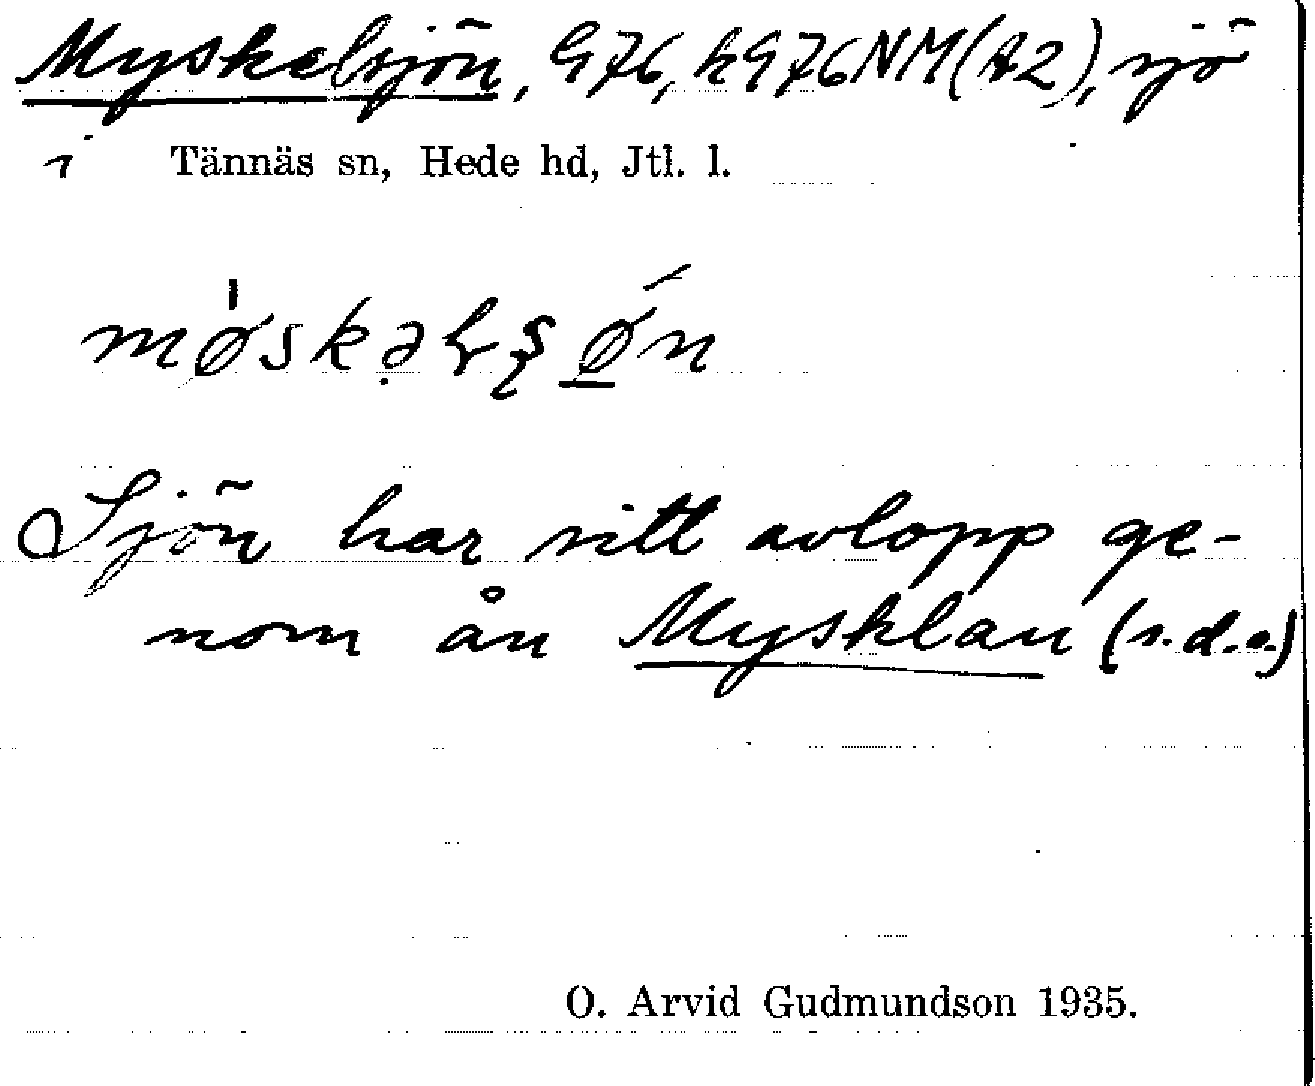 Myskelsjön, G76, kG76NM(A2), sjö
i Tännäs sn, Hede hd, Jtl. l.
Sjön har sitt avlopp ge-
nom ån Mysklan (s.d.o.)
O. Arvid Gudmundson 1935.